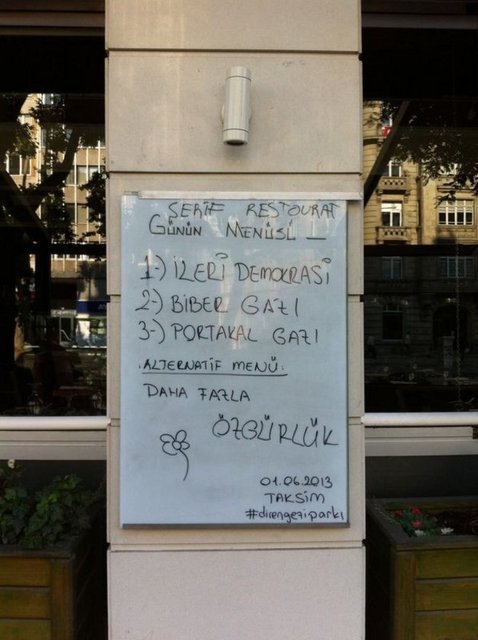 ŞERİF RESTOURAT
GÜNÜN MENÜSÜ _
1-) İLERİ DEMOKRASİ
2-) BİBER GAZI
3-) PORTAKAL GAZI
.ALTERNATİF MENÜ.
DAHA FAZLA
ÖZGÜRLÜK
01.06.2013
TAKSİM
#direngeziparkı